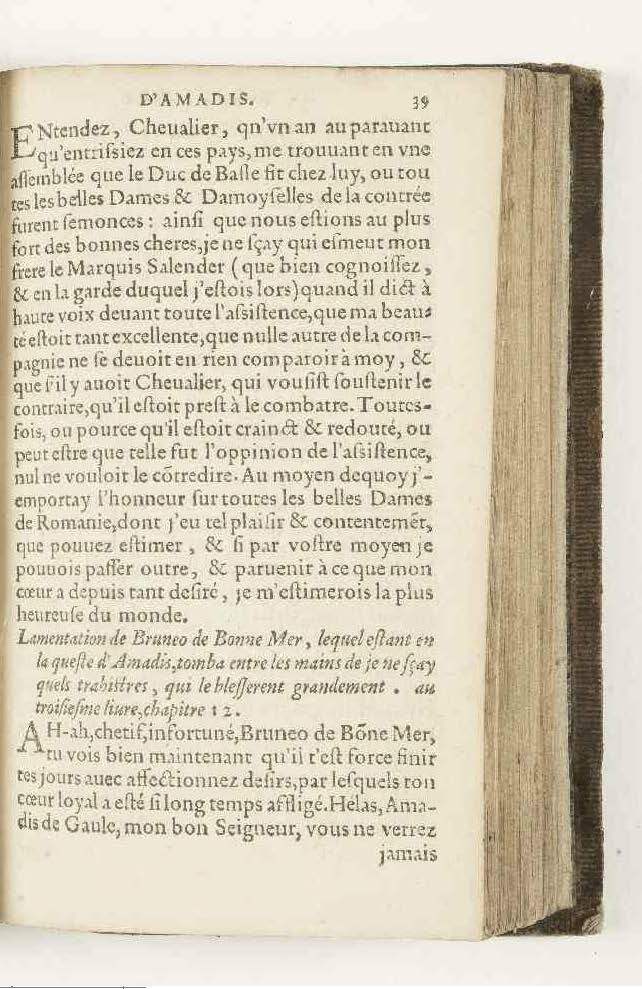 D'AMADIS. 39
ENtendez, Cheualier, qn'vn an auparauant
qu'entrissiez en ces pays, me trouuant en vne
assemblée que le Duc de Basle fit chez luy, ou tou
tes les belles Dames & Damoyselles de la contrée
furent semonces : ainsi que nous estions au plus
fort des bonnes cheres, je ne sçay qui esmeut mon
frere le Marquis Salender (que bien cognoissez,
& en la garde duquel j'estois lors) quand il dict à
haute voix deuant toute l'assistence, que ma beau
té estoit tant excellente, que nulle autre de la com-
pagnie ne se deuoit en rien comparoir à moy, &
que s'il y auoit Cheualier, qui vousist soustenir le
contraire, qu'il estoit prest à le combatre. Toutes-
fois, ou pource qu'il estoit crainct & redouté, ou
peut estre que telle fut l'oppinion de l'assistence,
nul ne vouloit le cõtredire. Au moyen dequoy j'-
emportay l'honneur sur toutes les belles Dames
de Romanie, dont j'eu tel plaisir & contentemẽt,
que pouuez estimer, & si par vostre moyen je
pouuois passer outre, & paruenir à ce que mon
cœur a depuis tant desiré, je m'estimerois la plus
heureuse du monde.
Lamentation de Bruneo de Bonne Mer, lequel estant en
la queste d'Amadis, tomba entre les mains de je ne sçay
quels trahistres, qui le blesserent grandement . au
troisiesme liure, chapitre 12.
AH-ah, chetif, infortuné, Bruneo de Bõne Mer,
tu vois bien maintenant qu'il t'est force finir
tes jours auec affectionnez desirs, par lesquels ton
cœur loyal a esté si long temps affligé. Hélas, Ama-
dis de Gaule, mon bon Seigneur, vous ne verrez
jamais